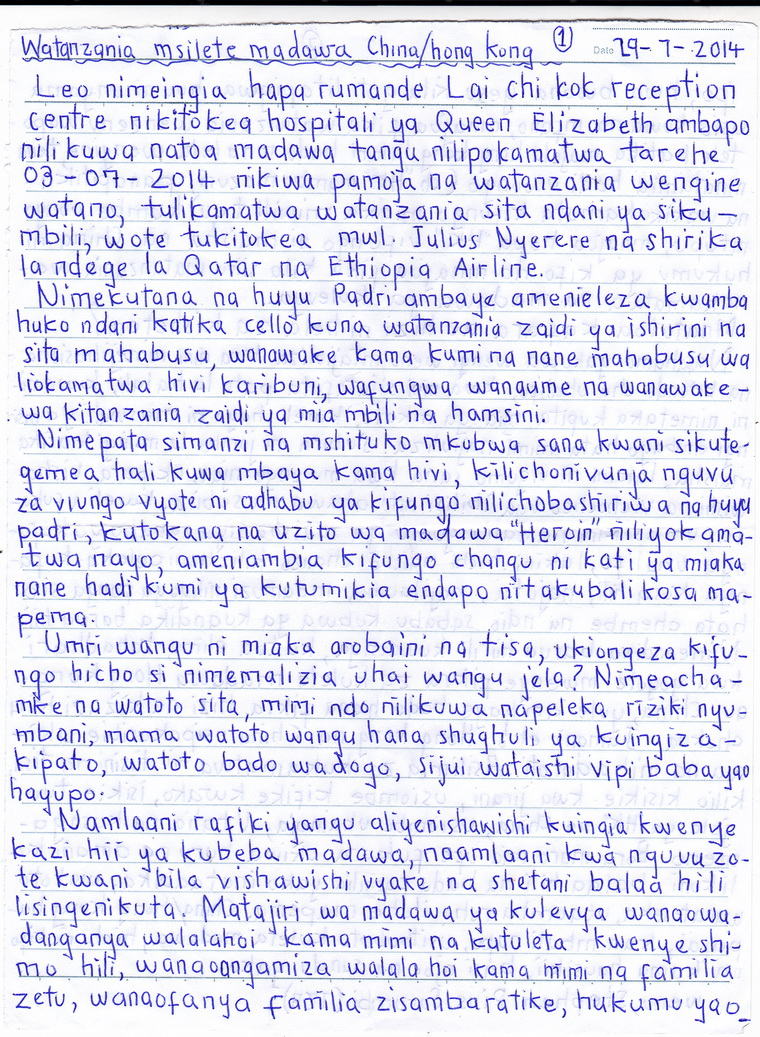 Watanzania msilete madawa China/hong kong ① Date 29-7-2014
Leo nimeingia hapa rumande Lai chi kok reception
centre nikitokea hospitali ya Queen Elizabeth ambapo
nilikuwa natoa madawa tangu nilipokamatwa tarehe
03-07-2014 nikiwa pamoja na watanzania wengine
watano, tulikamatwa watanzania sita ndani ya siku-
mbili, wote tukitokea mwl. Julius Nyerere na shirika
la ndege la Qatar na Ethiopia Airline.
Nimekutana na huyu Padri ambaye amenieleza kwamba
huko ndani katika cello kuna watanzania zaidi ya ishirini na
sita mahabusu, wanawake kama kumi na nane mahabusu wa
liokamatwa hivi karibuni, wafungwa wanaume na wanawake-
wa kitanzania zaidi ya mia mbili na hamsini.
Nimepata simanzi na mshituko mkubwa sana kwani sikute-
gemea hali kuwa mbaya kama hivi, kilichonivunja nguvu
za viungo vyote ni adhabu ya kifungo nilichobashiriwa na huyu
padri, kutokana na uzito wa madawa "Heroin" niliyokama-
twa nayo, ameniambia kifungo changu ni kati ya miaka
nane hadi kumi ya kutumikia endapo nitakubali kosa ma-
pema.
Umri wangu ni miaka arobaini na tisa, ukiongeza kifu-
ngo hicho si nimemalizia uhai wangu jela? Nimeacha-
mke na watoto sita, mimi ndo nilikuwa napeleka riziki nyu-
mbani, mama watoto wangu hana shughuli ya kuingiza-
kipato, watoto bado wadogo, sijui wataishi vipi baba yao
hayupo.
Namlaani rafiki yangu aliyenishawishi kuingia kwenye
kazi hii ya kubeba madawa, naamlaani kwa nguvu zo-
te kwani bila vishawishi vyake na shetani balaa hili
lisingenikuta. Matajiri wa madawa ya kulevya wanaowa-
danganya walalahoi kama mimi na kutuleta kwenye shi-
mo hili, wanaoangamiza walala hoi kama mimi na familia
zetu, wanaofanya familia zisambaratike, hukumu yao-